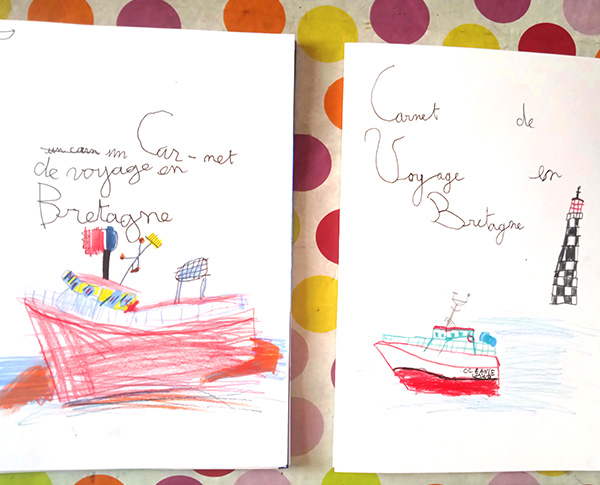 un Car-net
de voyage en
Bretagne
Carnet de
Voyage en
Bretagne